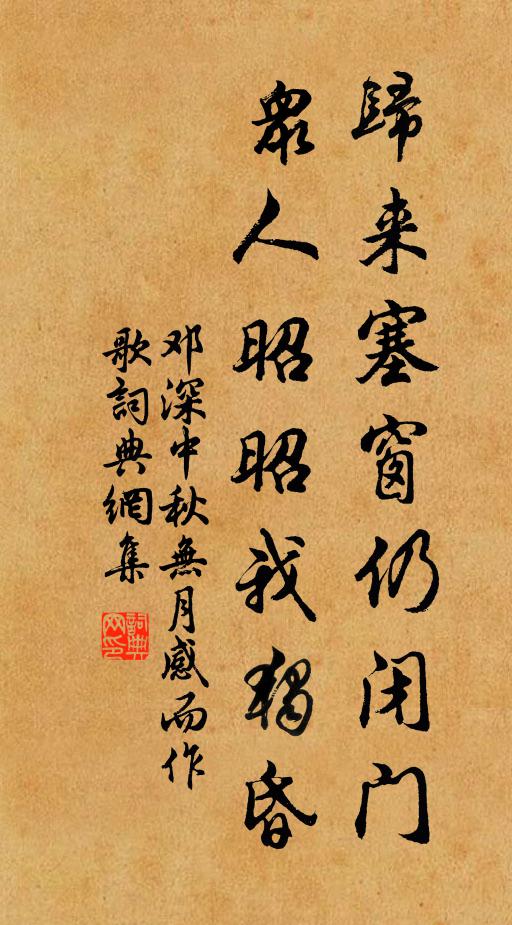 歸来塞窗仍闭门
衆人昭昭我獨昏
邓深中秋無月感而作
歌詞典網集
詞典网印